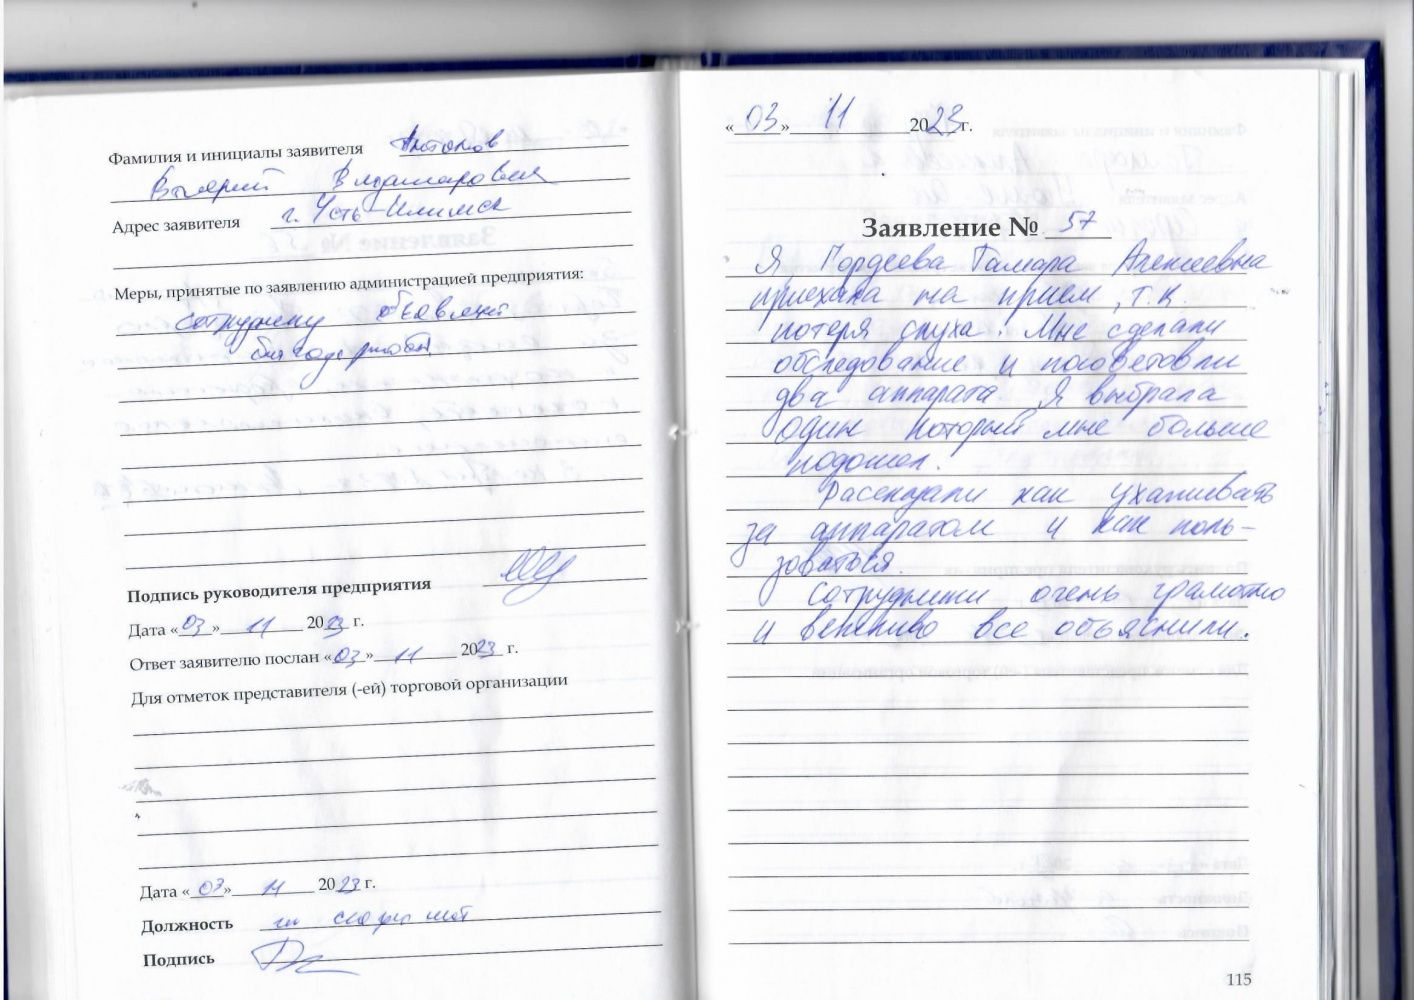 Фамилия и инициалы заявителя Антонов
Валерий Владимирович
Адрес заявителя г. Усть-Илимск
Меры, принятые по заявлению администрацией предприятия:
сотруднику объявлена
благодарность
Подпись руководителя предприятия
Дата «03» 11 2023 г.
Ответ заявителю послан «03» 11 2023 г.
Для отметок представителя (-ей) торговой организации
Дата «03» 11 2023 г.
Должность
Подпись
«03» 11 2023 г.
Заявление № 57
Я Гордеева Тамара Алексеевна
приехала на прием, т.к.
потеря слуха. Мне сделали
обследование и посоветовли
два аппарата. Я выбрала
один который мне больше
подошел.
Рассказали как ухаживать
за аппаратом и как поль-
зоваться.
Сотрудники очень грамотно
и вежливо все объяснили.
115